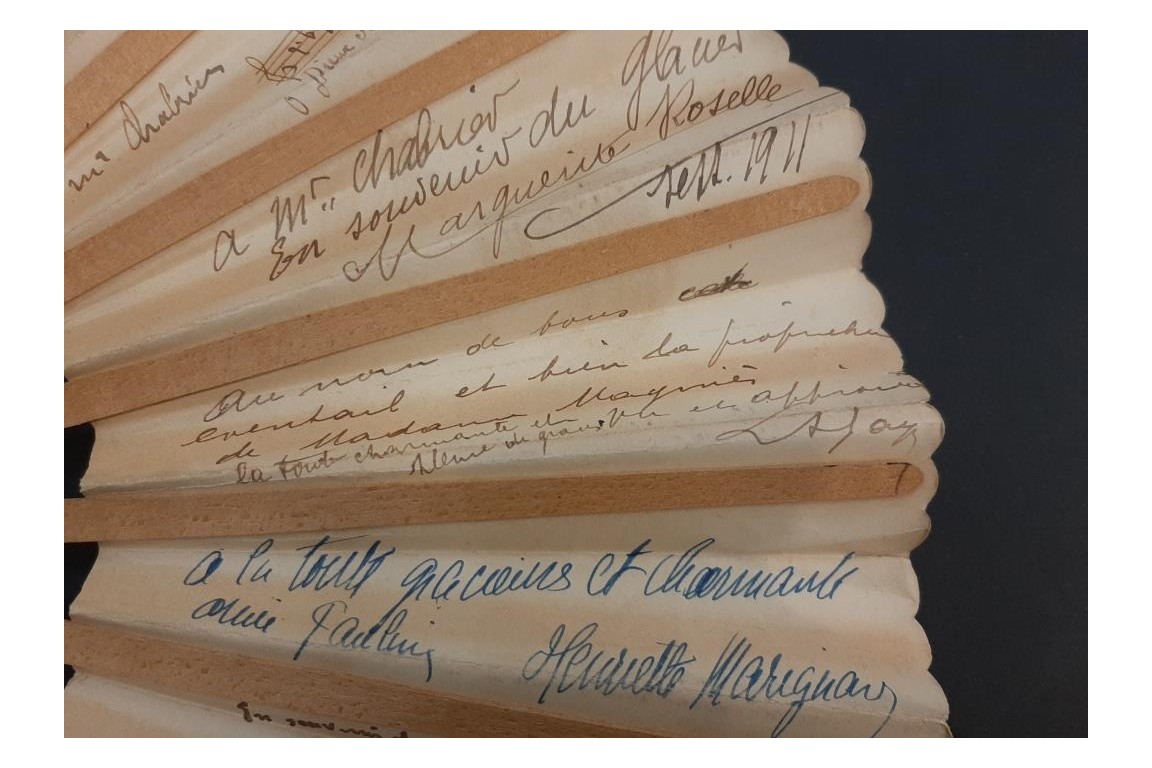 Mr Chabrier
a Mr Chabrier
En souvenir du glacier
Marguerite Roselle
sept. 1911
Au nom de tous
eventail et bien la
de Madame Magniès
la toute charmante et
Vu et approuvé
7
a la toute gracieuse et charmante
amie Pauline
Henriette Marignan
En souvenir d